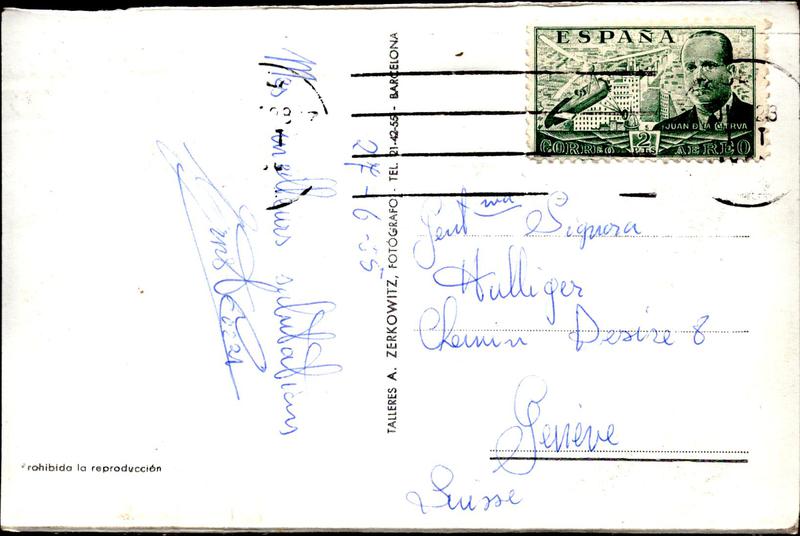 Mes meilleurs salutations
27-6-55
TALLERES A. ZERKOWITZ, FOTÓGRAFO - TEL. 21-42-55 - BARCELONA
Prohibida la reproducción
ESPAÑA
JUAN DE LA CIERVA
2 PTS
CORREO AEREO
Gent.ma Signora
Hulliger
Chemin Desire 8
Genève
Suisse